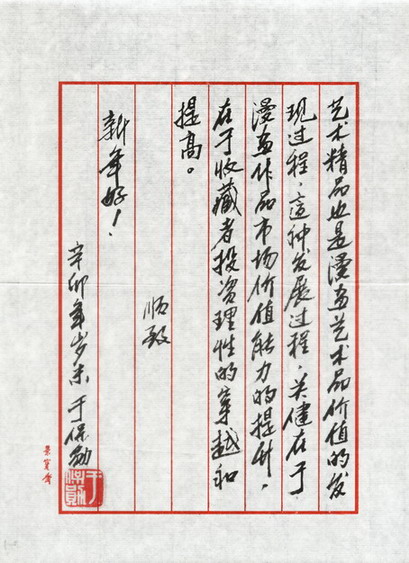 艺术精品也是漫画艺术品价值的发
现过程，这种发展过程，关健在于
漫画作品市场价值能力的提升，
在于收藏者投资理性的穿越和
提高。
顺致
新年好！
辛卯年岁末于保勋